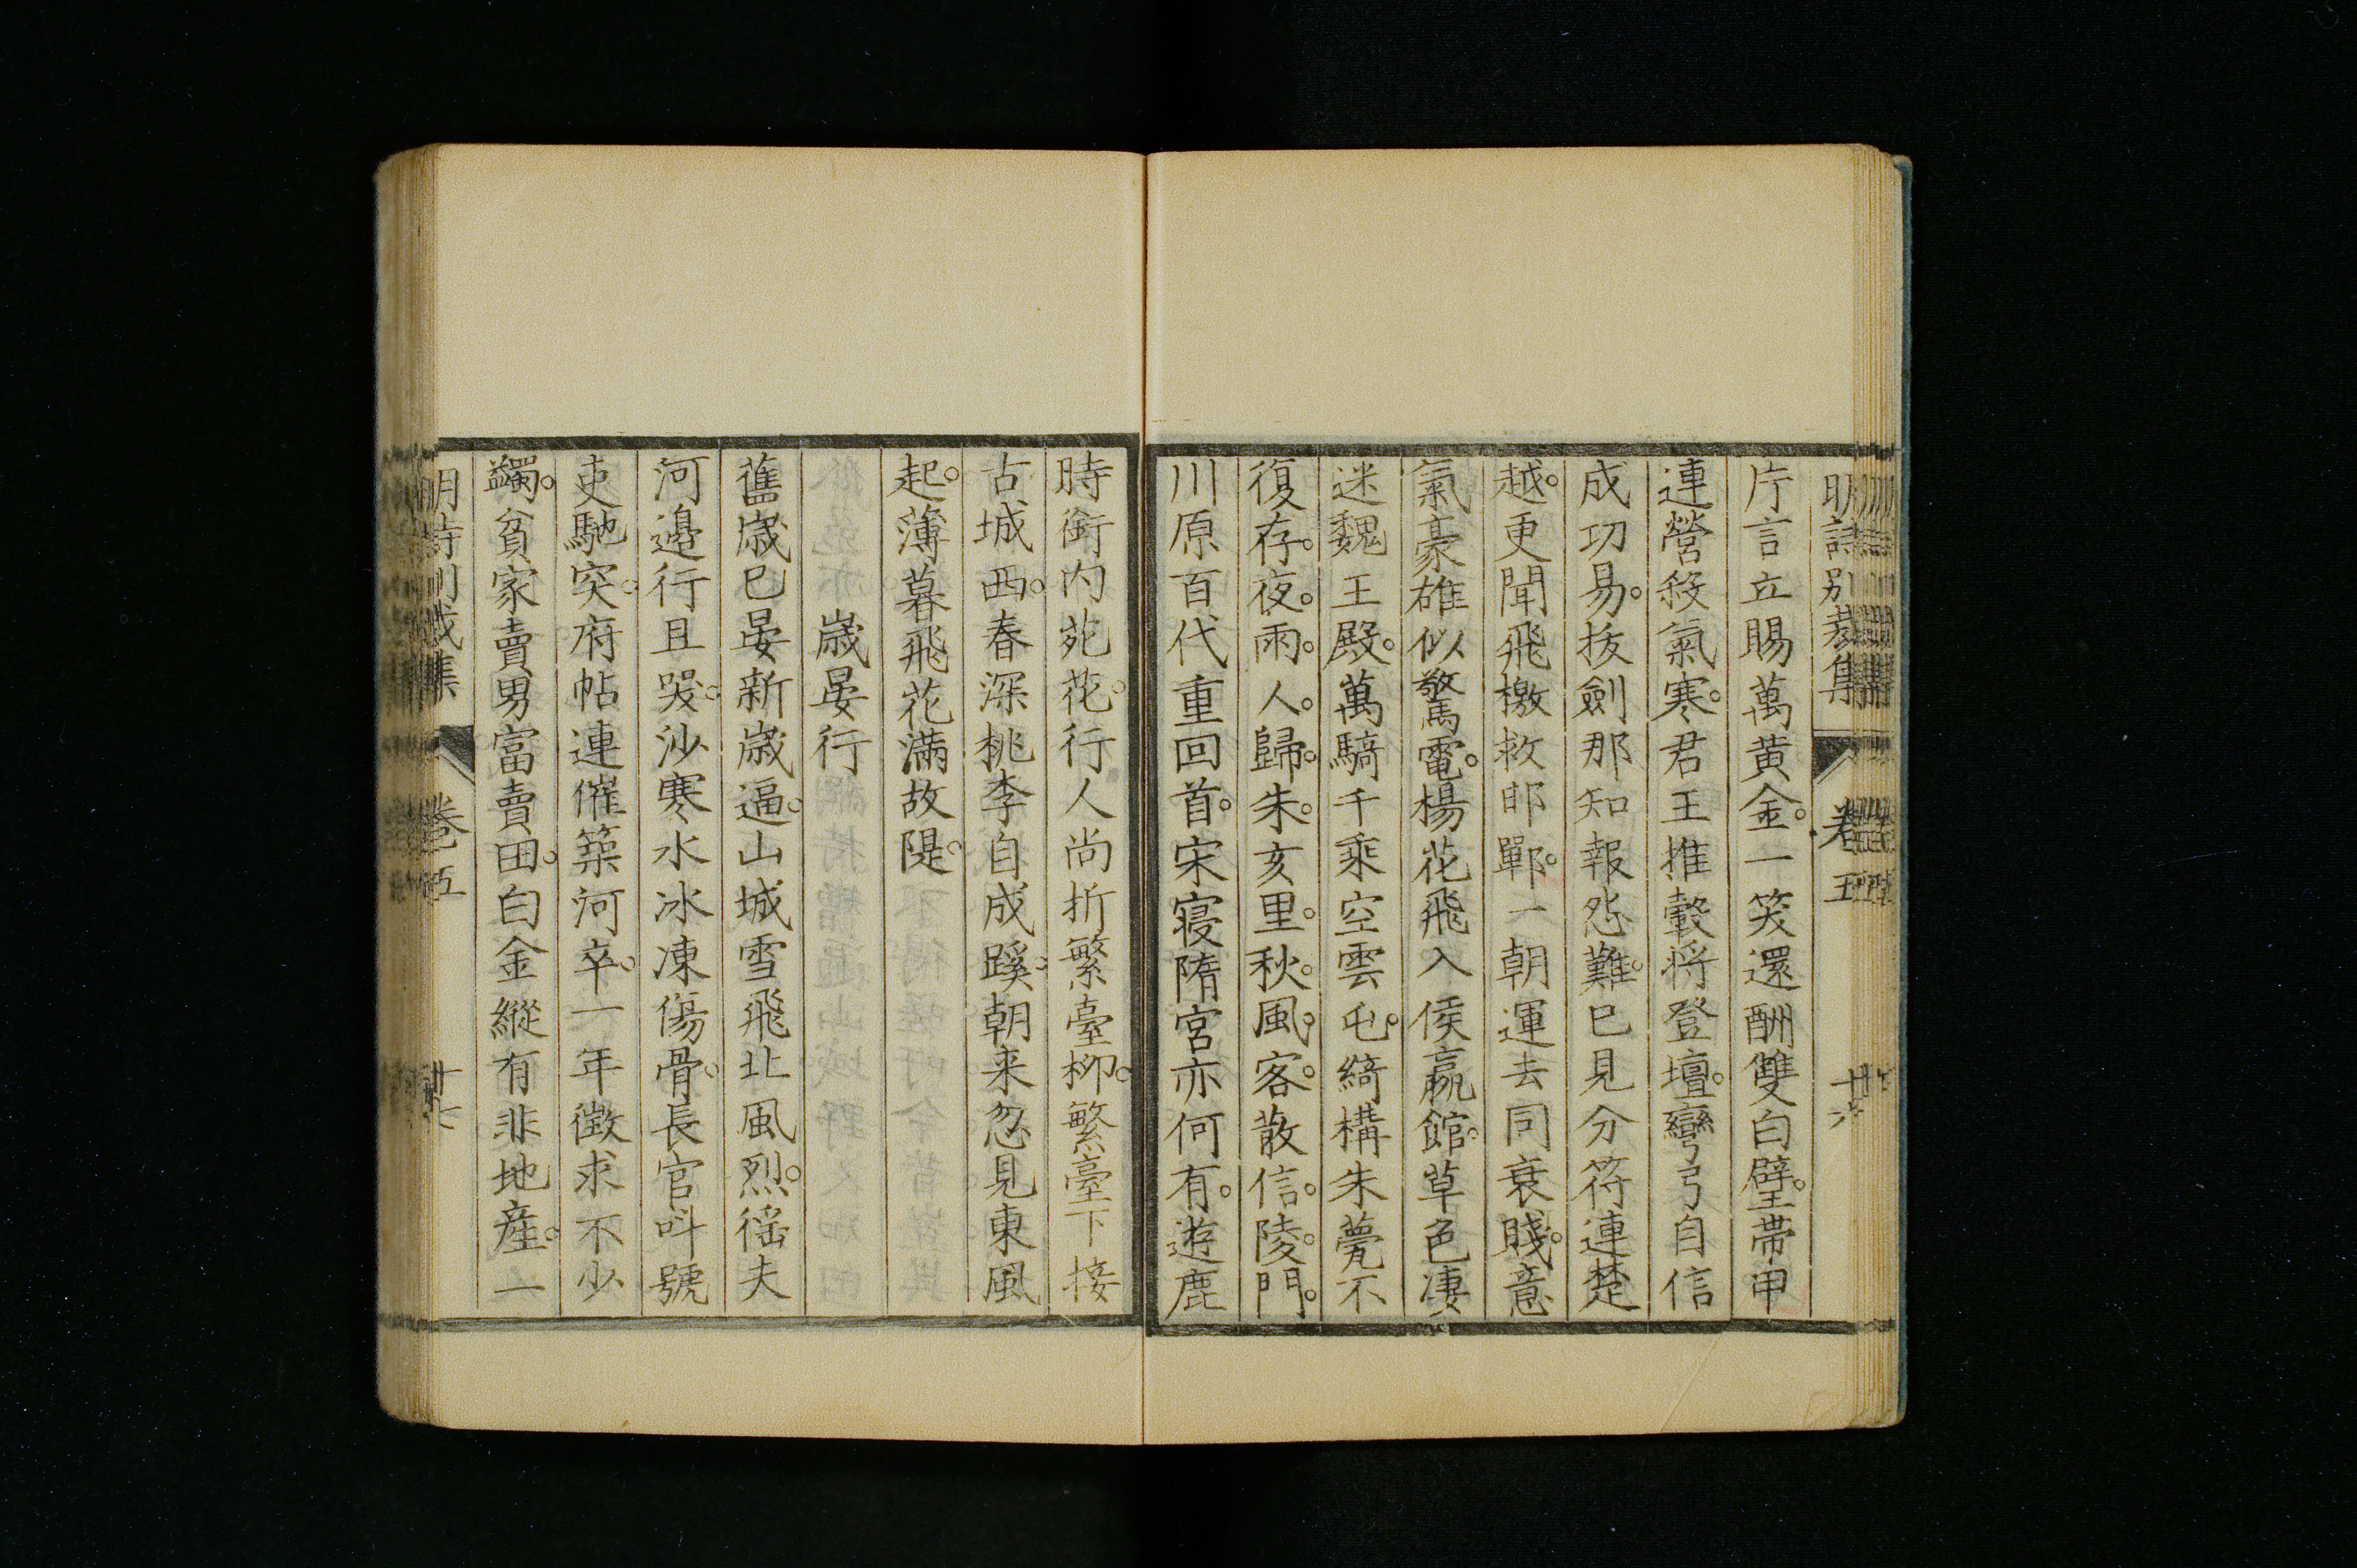 明詩別裁集 卷五 十六
片言立賜萬黄金。一笑還酬雙白璧。帶甲
連營殺氣寒。君王推轂將登壇。彎弓自信
成功易。抜劍那知報怨難。已見分符連楚
越。更聞飛檄救邯鄲。一朝運去同衰賤。意
氣豪雄似驚電。楊花飛入侯嬴館。草色凄
迷魏王殿。萬騎千乘空雲屯。綺構朱甍不
復存。夜。雨。人。歸。朱。亥里。秋。風。客。散信。陵。門。
川原百代重回首。宋寝隋宮亦何有。遊鹿
時銜内苑花。行人尚折繁臺柳。繁臺下接
古城西。春深桃李自成蹊。朝来忽見東風
起。薄暮飛花滿故隄。
歲晏行
舊歲已晏新歲逼。山城雪飛北風烈。徭夫
河邊行且哭。沙寒水冰凍傷骨。長官呌號
吏馳突。府帖連催築河卒。一年徴求不少
蠲。貧家賣男富賣田。白金縱有非地産。一
明詩別裁集 卷五 十七